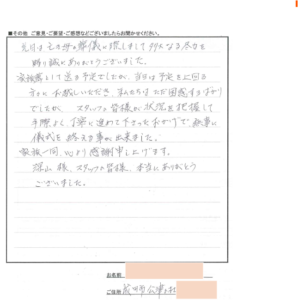 ■その他 ご意見・ご要望・ご感想などございましたらお聞かせください。
先日は 母の葬儀に際しまして 多大なる尽力を
賜り誠にありがとうございました。
家族葬として 予定でしたが、当日は予定を上回る
方々にお越しいただき、私たちは ただ困惑するばかり
でしたが、スタッフの皆様が 状況を把握して
手際よく、丁寧に進めて下さったおかげで、無事に
儀式を終える事が出来ました。
家族一同、心より感謝申し上げます。
様、スタッフの皆様、本当にありがとう
ございました。
お名前
ご住所